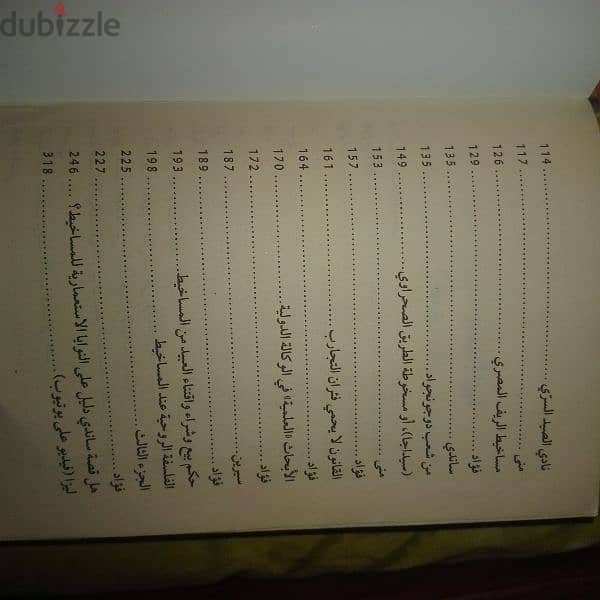 dubizzle
نادي الصيد السرّي 114
منى 117
مساخيط الريف المصري 126
فؤاد 129
ساندي 135
من شعب دوجونجواد 135
(سيداجا)، أو مسخوطة الطريق الصحراوي 149
منى 153
فؤاد 157
القانون لا يحمي فئران التجارب 161
فؤاد 164
الأبحاث «العلمية» في الوكالة الدولية 170
فؤاد 172
سيرين 187
فؤاد 189
حكم بيع وشراء واقتناء العبيد من المساخيط 193
الفلسفة الروحية عند المساخيط 198
الجزء الثالث 225
فؤاد 227
هل قصة ساندي دليل على النوايا الاستعمارية للمساخيط؟ 246
ليزا (فيديو على يوتيوب) 318